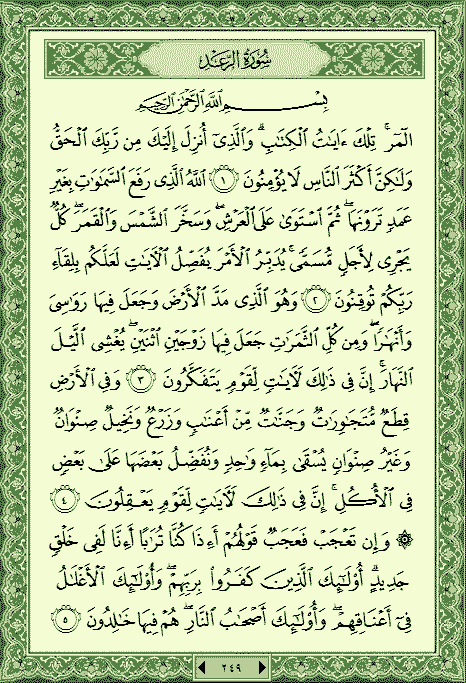 سُورَةُ الرَّعْدِ
بِسْمِ ٱللَّهِ ٱلرَّحْمَٰنِ ٱلرَّحِيمِ
الٓمٓر ۚ تِلْكَ ءَايَٰتُ ٱلْكِتَٰبِ ۗ وَٱلَّذِىٓ أُنزِلَ إِلَيْكَ مِن رَّبِّكَ ٱلْحَقُّ
وَلَٰكِنَّ أَكْثَرَ ٱلنَّاسِ لَا يُؤْمِنُونَ ١ ٱللَّهُ ٱلَّذِى رَفَعَ ٱلسَّمَٰوَٰتِ بِغَيْرِ
عَمَدٍ تَرَوْنَهَا ۖ ثُمَّ ٱسْتَوَىٰ عَلَى ٱلْعَرْشِ ۖ وَسَخَّرَ ٱلشَّمْسَ وَٱلْقَمَرَ ۖ كُلٌّ
يَجْرِى لِأَجَلٍ مُّسَمًّى ۚ يُدَبِّرُ ٱلْأَمْرَ يُفَصِّلُ ٱلْءَايَٰتِ لَعَلَّكُم بِلِقَآءِ
رَبِّكُمْ تُوقِنُونَ ٢ وَهُوَ ٱلَّذِى مَدَّ ٱلْأَرْضَ وَجَعَلَ فِيهَا رَوَٰسِىَ
وَأَنْهَٰرًا ۖ وَمِن كُلِّ ٱلثَّمَرَٰتِ جَعَلَ فِيهَا زَوْجَيْنِ ٱثْنَيْنِ ۖ يُغْشِى ٱلَّيْلَ
ٱلنَّهَارَ ۚ إِنَّ فِى ذَٰلِكَ لَءَايَٰتٍ لِّقَوْمٍ يَتَفَكَّرُونَ ٣ وَفِى ٱلْأَرْضِ
قِطَعٌ مُّتَجَٰوِرَٰتٌ وَجَنَّٰتٌ مِّنْ أَعْنَٰبٍ وَزَرْعٌ وَنَخِيلٌ صِنْوَانٌ
وَغَيْرُ صِنْوَانٍ يُسْقَىٰ بِمَآءٍ وَٰحِدٍ وَنُفَضِّلُ بَعْضَهَا عَلَىٰ بَعْضٍ
فِى ٱلْأُكُلِ ۚ إِنَّ فِى ذَٰلِكَ لَءَايَٰتٍ لِّقَوْمٍ يَعْقِلُونَ ٤
۞ وَإِن تَعْجَبْ فَعَجَبٌ قَوْلُهُمْ أَءِذَا كُنَّا تُرَٰبًا أَءِنَّا لَفِى خَلْقٍ
جَدِيدٍ ۗ أُو۟لَٰٓئِكَ ٱلَّذِينَ كَفَرُوا۟ بِرَبِّهِمْ ۖ وَأُو۟لَٰٓئِكَ ٱلْأَغْلَٰلُ
فِىٓ أَعْنَاقِهِمْ ۖ وَأُو۟لَٰٓئِكَ أَصْحَٰبُ ٱلنَّارِ ۖ هُمْ فِيهَا خَٰلِدُونَ ٥
٢٤٩